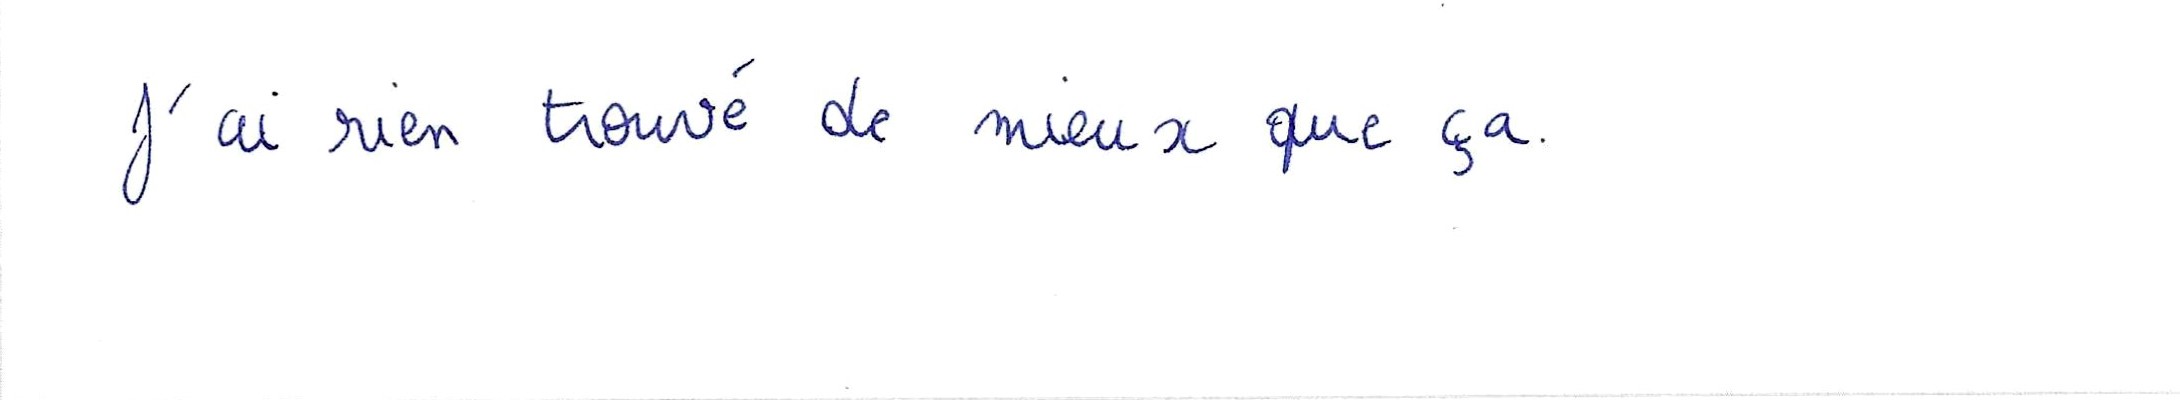 J'ai rien trouvé de mieux que ça.